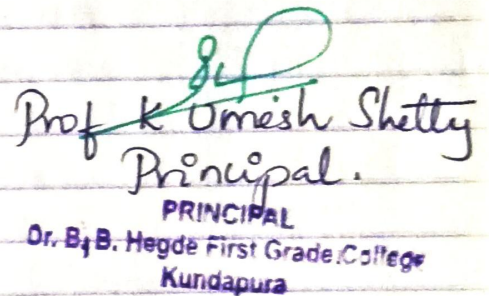 Prof K Umesh Shetty
Principal.
PRINCIPAL
Dr. B. B. Hegde First Grade College
Kundapura